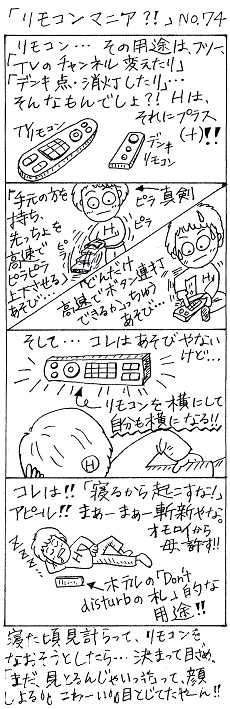 「リモコンマニア?!」No.74
リモコン… その用途は、フツー、
「TVのチャンネル変えたり」
「デンキ点・消灯したり」…
そんなもんでしょ?! Hは、
それにプラス
(+)!!
TVリモコン
デンキ
リモコン
「手元の方を
持ち、
先っちょを
高速で
ピラピラ
上下させる」
あそび…
ピラ
ピラ
ピラ
ピラ
真剣
H
「どんだけ
高速でボタン連打
できるか」っちゅう
あそび…
H
そして… コレはあそびやない
けど…
リモコンを横にして
自分も横になる!!
H
コレは!!「寝るから起こすな!」
アピール!! まぁーまぁー斬新やな。
オモロイから
母・許す!!
ZZZZ
ホテルの「Don't
disturbの札」的な
用途!!
寝た頃見計らって、リモコンを
なおそうとしたら… 決まって目ざめ、
「まだ、見とるんじゃい」っつって、顔
しよる。こわーい。目とじてたやーん!!